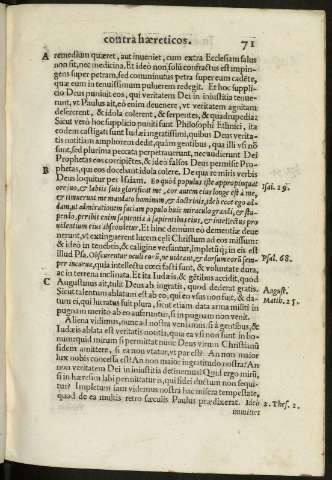 contra hæreticos.
71
A remedium quæret, aut inueniet, cum extra Ecclesiam salus
non sit, nec medicina. Et ideò non solũ confractus est impin-
gens super petram, sed comminutus petra super eum cadẽte,
quæ eum in tenuissimum puluerem redegit. Et hoc suppli-
cio Deus punisit eos, qui veritatem Dei in iniustitia tenue-
runt, vt Paulus ait, eò enim deuenere, vt veritatem agnitam
desererent, & idola colerent, & serpentes, & quadrupedia:
Sicut verò hoc supplicio puniti sunt Philosophi Ethnici, ita
eodem castigati sunt Iudæi ingratissimi, quibus Deus verita-
tis notitiam ampliorem dedit, quàm gentibus, qua illi vsi nõ
sunt, sed plurima peccata perpetrauerunt, nec audierunt Dei
Prophetas eos corripiẽtes, & ideò falsos Deus permisit Pro-
phetas, qui eos docebant idola colere. De qua re miris verbis
B Deus loquitur per Isaiam. Eo quòd populus iste appropinquat
ore suo, & labiis suis glorificat me, cor autem eius longe est à me,
Isai. 29.
& timuerunt me mandato hominum, & doctrinis, ideò ecce ego ad-
dam, vt admirationem faciam populo huic miraculo grandi, & stu-
pendo, peribit enim sapientia à sapientibus eius, & intellectus pru
dentium eius abscondetur. Et hinc demum eò dementiæ deue
nerunt, vt extinguerent lucem cœli Christum ad eos missum:
& ideò in tenebris, & caligine versantur, impletũq; in eis est
illud Psa. Obscurentur oculi eorũ, ne videant, & dorsum eorũ sem-
Psal. 68.
per incurua, quia intellectu cœci facti sunt, & voluntate dura,
ac in terrena inclinata. Et ita Iudæis, & gẽtibus accidit, quod
C Augustinus ait, tulit Deus ab ingratis, quod dederat gratis.
August.
Sicut talentum ablatum est ab eo, qui eo vsus non fuit, & da-
Matth. 25.
tum ei, qui lucratus fuit plura, sicut etiam data arma militi in
pugnam meritò ab eo auferuntur, si in pugnam non venit.
Aliena vidimus, nunc ad nostra veniamus. si à gentibus, &
Iudæis ablata est veritatis notitia, quia ea vsi nõ sunt in bo-
num: quid mirum si permittat nunc Deus vnum Christianũ
fidem amittere, si ea non vtatur, vt par est? An non maior
lux nobis concessa est? An non maior ingratitudo nostra? An
non veritatem Dei in iniustitia detinemus? Quid ergo mirũ,
si in hæresim labi permittatur is, qui fidei ductum non sequi-
tur? Impletum iam videmus nostra hac misera tempestate,
quod de ea multis retro sæculis Paulus prædixerat. Ideò
2. Thes. 2.
immittet